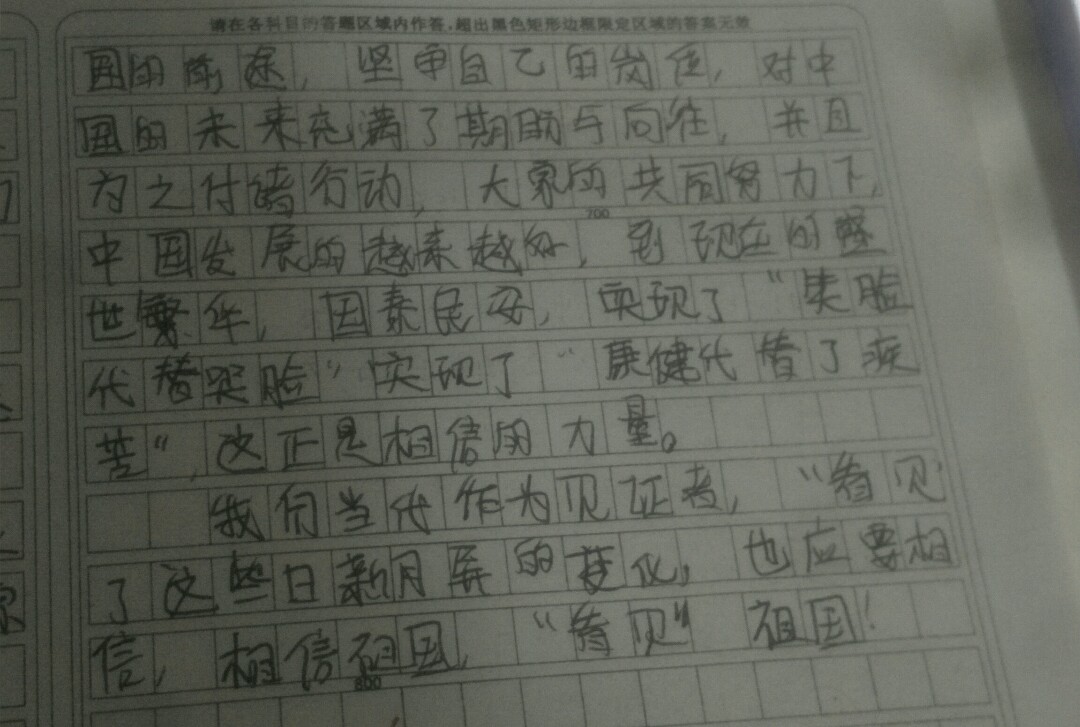 请在各科目的答题区域内作答,超出黑色矩形边框限定区域的答案无效
国的前途，坚守自己的岗位，对中
国的未来充满了期盼与向往，并且
为之付诸行动，大家的共同努力下，
700
中国发展的越来越好，到现在的盛
世繁华，国泰民安，实现了“笑脸
代替哭脸”实现了“康健代替了疾
苦”，这正是相信的力量。
我们当代作为见证者，“看见
了这些日新月异的变化，也应要相
信，相信祖国，“看见”祖国！
800